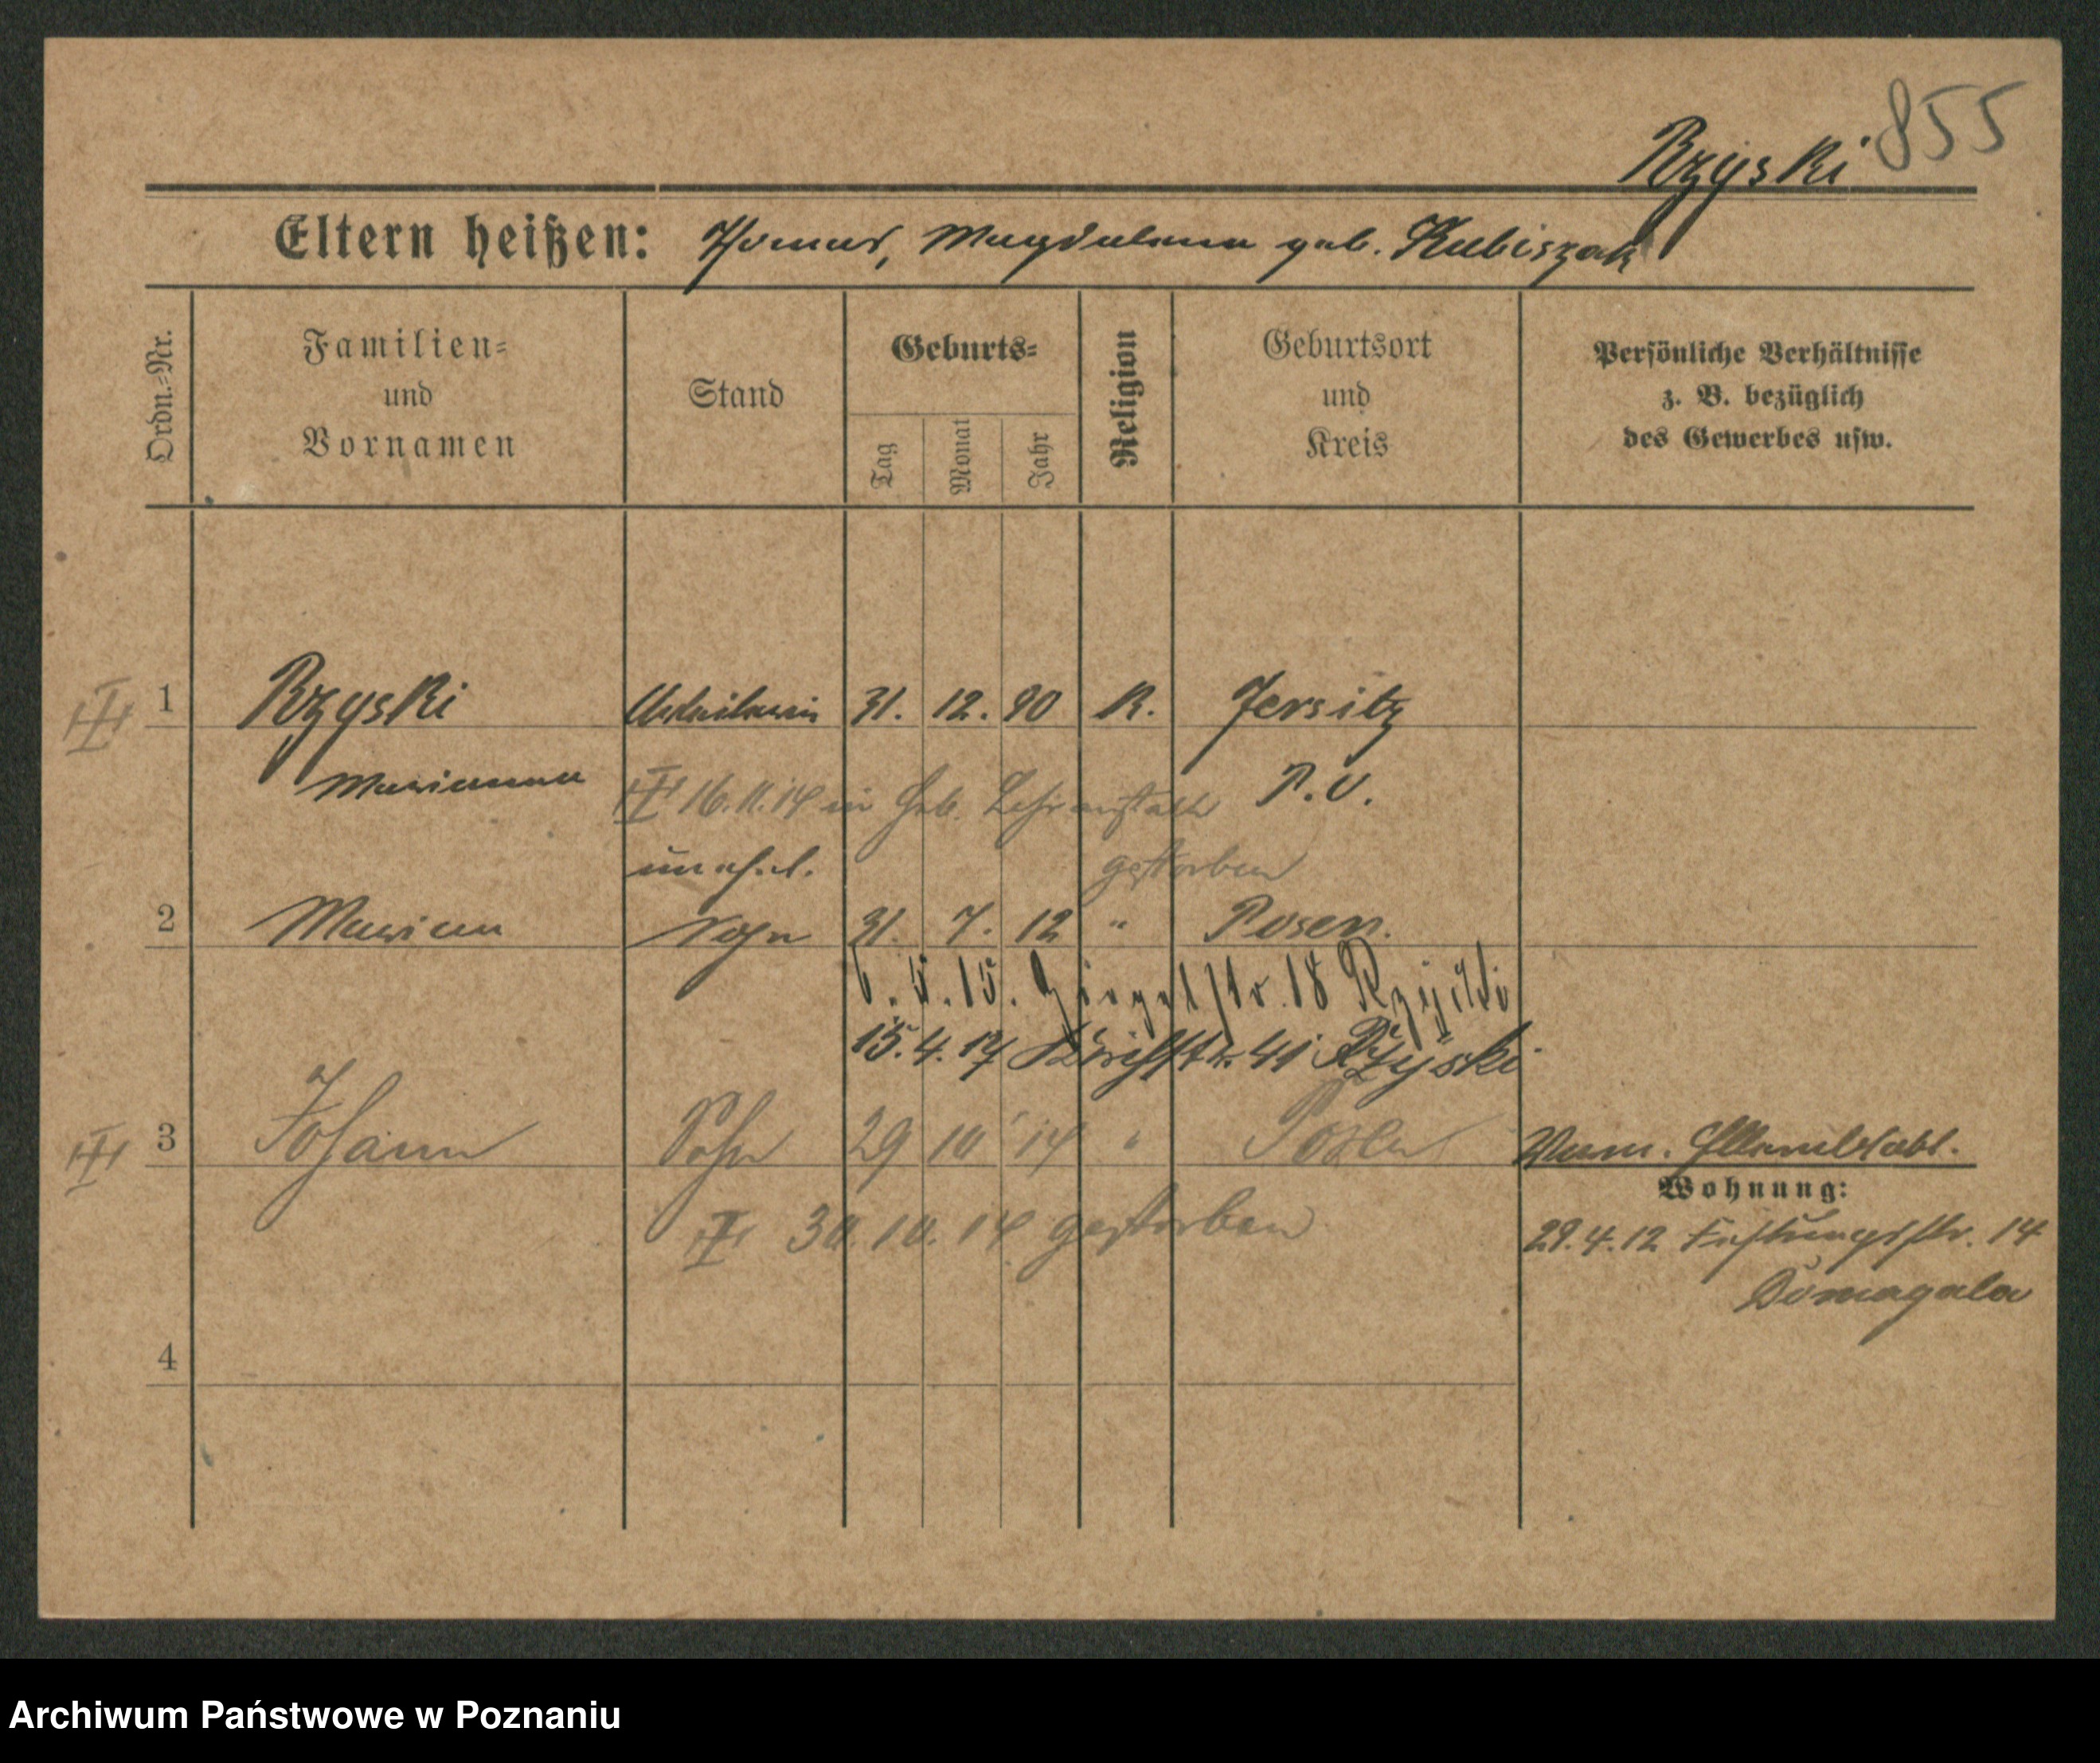 855
Rzyski
Eltern heißen: Thomas, Magdalena geb. Kubiszak
Ordn.-Nr.
Familien-
und
Vornamen
Stand
Geburts-
Tag
Monat
Jahr
Religion
Geburtsort
und
Kreis
Persönliche Verhältnisse
z. B. bezüglich
des Gewerbes usw.
1 Rzyski Arbeiterin 31. 12. 90 K. Jersitz
Marianna P.O.
16.11.14 in Heb. Lehranstalt
gestorben
unehel.
2 Marian Sohn 31. 7. 12 " Posen.
6. 4. 15. 18 Rzyski
15. 4. 17 41 Rzyski
3 Johann Sohn 29 10 14 " Posen
30. 10. 14 gestorben
Wohnung:
29.4.12 Festungsstr. 14
Domagala
4
Archiwum Państwowe w Poznaniu